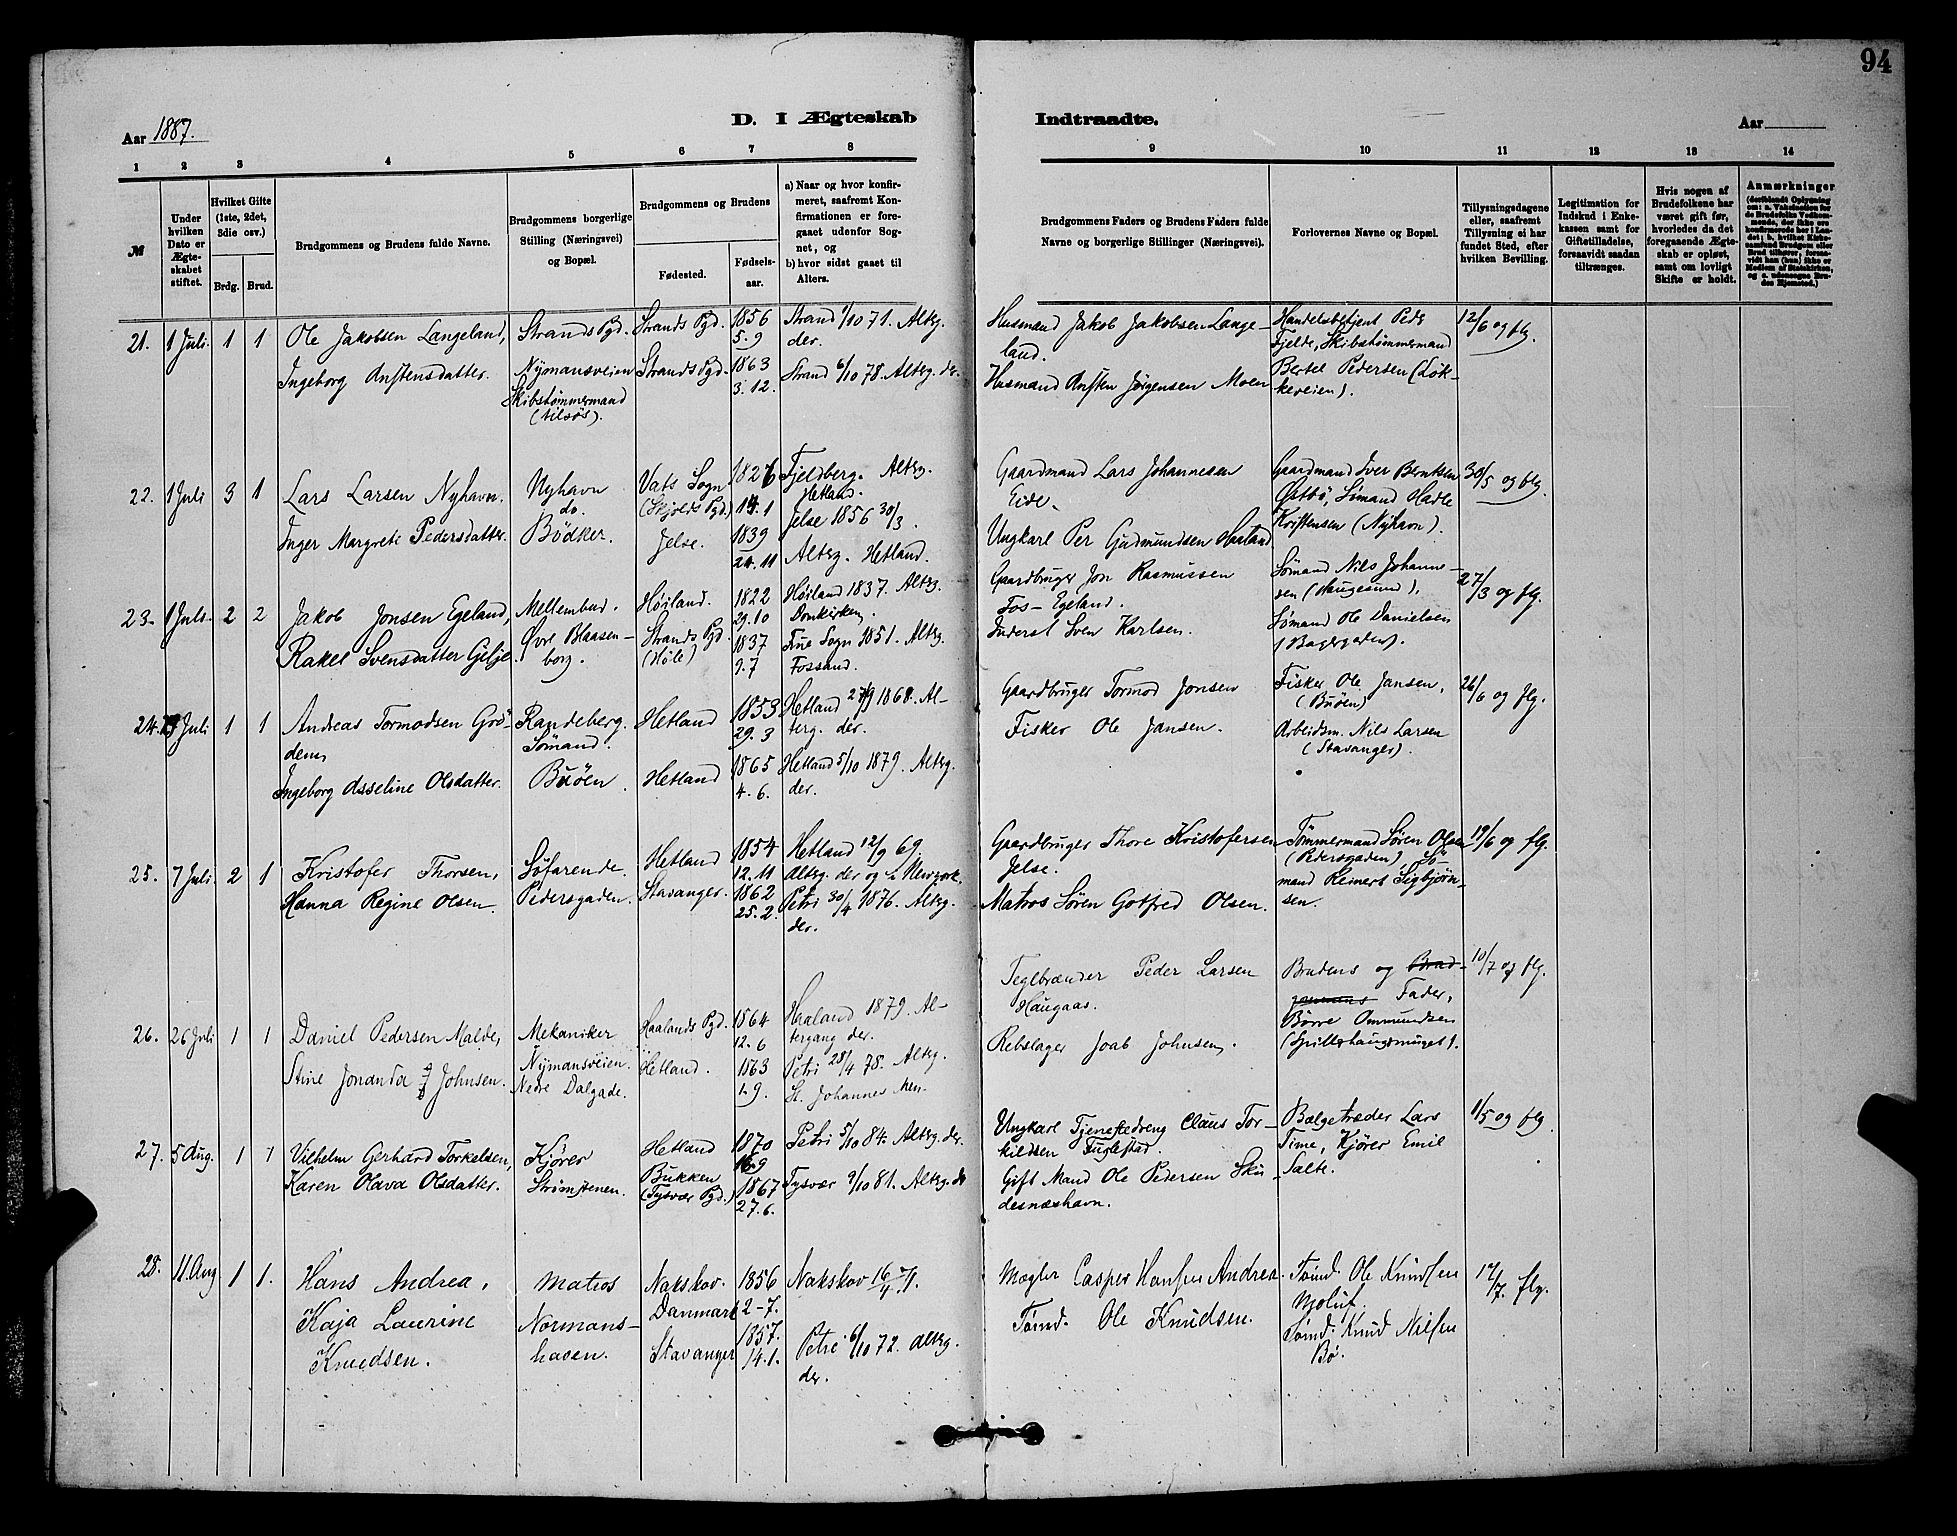 94
Aar 1887.
D. I Ægteskab Indtraadte.
Aar
1 2 3 4 5 6 7 8 9 10 11 12 13 14
№
Under hvilken Dato er Ægteskabet stiftet.
Hvilket Gifte (1ste, 2det, 3die osv.)
Brdg. Brud.
Brudgommens og Brudens fulde Navne.
Brudgommens borgerlige Stilling (Næringsvei) og Bopæl.
Brudgommens og Brudens
Fødested.
Fødselsaar.
a) Naar og hvor konfirmeret, saafremt Konfirmationen er foregaaet udenfor Sognet, og
b) hvor sidst gaaet til Alters.
Brudgommens Faders og Brudens Faders fulde Navne og borgerlige Stillinger (Næringsvei).
Forlovernes Navne og Bopæl.
Tillysningsdagene eller, saafremt Tillysning ei har fundet Sted, efter hvilken Bevilling.
Legitimation for Indskud i Enkekassen samt for Giftetilladelse, forsaavidt saadan tiltrænges.
Hvis nogen af Brudefolkene har været gift før, hvorledes da det foregaaende Ægteskab er opløst, samt om lovligt Skifte er holdt.
Anmærkninger
21. 1 Juli. 1 1
Ole Jakobsen Langeland,
Ingeborg Anstensdatter.
Strands Pgd.
Nymansveien
Skibstømmermand
Strands Pgd.
Strands Pgd.
1856
5.9
1863
3.12.
Strand 1/10 71. Altrg.
der.
Strand 6/10 78. Altrg. der
Husmand Jakob Jakobsen Lange-
land.
Husmand Ansten Jørgensen Moen
Handelsbetjent Peder
Fjelde, Skibstømmermand
Bertel Pedersen (Løk-
keveien).
12/6 og flg.
22. 1 Juli 3 1
Lars Larsen Nyhavn.
Inger Margrete Pedersdatter.
Nyhavn
do.
Bødker.
Vats Sogn
(Skjolds Pgd.)
Jelse.
1826
14.1
1839
24.11
Fjeldberg. Altrg.
Hetland.
Jelse 1856 30/3.
Altrg. Hetland.
Gaardmand Lars Johannesen
Eide.
Ungkarl Per Gudmundsen Haaland
Gaardmand Iver Berntsen
Østbø, Sømand Hadle
Kristensen (Nyhavn).
30/5 og flg.
23. 1 Juli. 2 2
Jakob Jonsen Egeland,
Rakel Svensdatter Gilje
Mellembud.
Øvre Blaasen-
borg.
Høiland.
Strands Pgd
(Høle)
1822
29.10
1837
9.7
Høiland 1837. Altrg.
Domkirken.
Tine Sogn 1851. Altrg.
Fossand.
Gaardbruger Jon Rasmussen
Fos-Egeland.
Inderst Sven Karlsen.
Sømand Nils Johanne-
sen (Haugesund).
Sømand Ole Danielsen
(Bagergaden).
27/3 og flg.
24. Juli 1 1
Andreas Tormodsen Grø-
dem,
Ingeborg Asseline Olsdatter.
Randeberg.
Sømand.
Buøen.
Hetland
Hetland
1853
29.3
1865
4.6.
Hetland 27/9 1868. Al-
terg. der.
Hetland 5/10 1879. Altrg.
der.
Gaardbruger Tormod Jonsen
Fisker Ole Jansen.
Fisker Ole Jansen,
(Buøen)
Arbeidsm. Nils Larsen
(Stavanger).
26/6 og flg.
25. 7 Juli. 2 1
Kristofer Thorsen,
Hanna Regine Olsen.
Søfarende.
Pedersgaden.
Hetland
Stavanger.
1854
12.11
1862
25.2.
Hetland 12/9 69.
Altrg. der og i Newyork.
Petri 30/4 1876. Altrg.
der.
Gaardbruger Thore Kristofersen
Jelse.
Matros Søren Gotfred Olsen.
Tømmermand Søren Olsen
(Pedersgaden), Sø-
mand Reinert Sigbjørn-
sen.
19/6 og flg.
26. 26 Juli 1 1
Daniel Pedersen Malde,
Stine Jonanda Johnsen.
Mekaniker
Nymansveien.
Nedre Dalgade.
Haalands Pgd.
Hetland.
1864
12.6
1863
1.9.
Haaland 1879. Al-
tergang der.
Petri 28/4 78. Altrg.
St. Johannes Men.
Teglbrænder Peder Larsen
Haugaas.
Rebslager Joab Johnsen.
Brudens og Brud-
gommens Fader,
Børre Ommundsen
10/7 og flg.
27. 5 Aug. 1 1
Vilhelm Gerhard Torkelsen,
Karen Olava Olsdatter.
Kjører
Strømstenen.
Hetland
Bukken
(Tysvær Pgd.)
1870
16.9
1867
27.6.
Petri 5/10 84. Altrg. der.
Tysvær 9/10 81. Altrg. der
Ungkarl Tjenestedreng Claus Tor-
kildsen Fuglestad.
Gift Mand Ole Pedersen Sku-
desnæshavn.
Bælgetræder Lars
Time, Kjører Emil
Salte.
1/5 og flg.
28. 11. Aug 1 1.
Hans Andrea,
Kaja Laurine
Knudsen.
Matros
Normans-
haven.
Nakskov.
Danmark
Stavanger
1856
2-7.
1857.
14.1.
Nakskov 16/4 71.
Petri 6/10 72. Altrg.
der.
Mægler Casper Hansen Andrea.
Tømd. Ole Knudsen.
Tømd. Ole Knudsen
Mjoluf.
Tømd. Knud Nilsen
Bø.
17/7. flg.